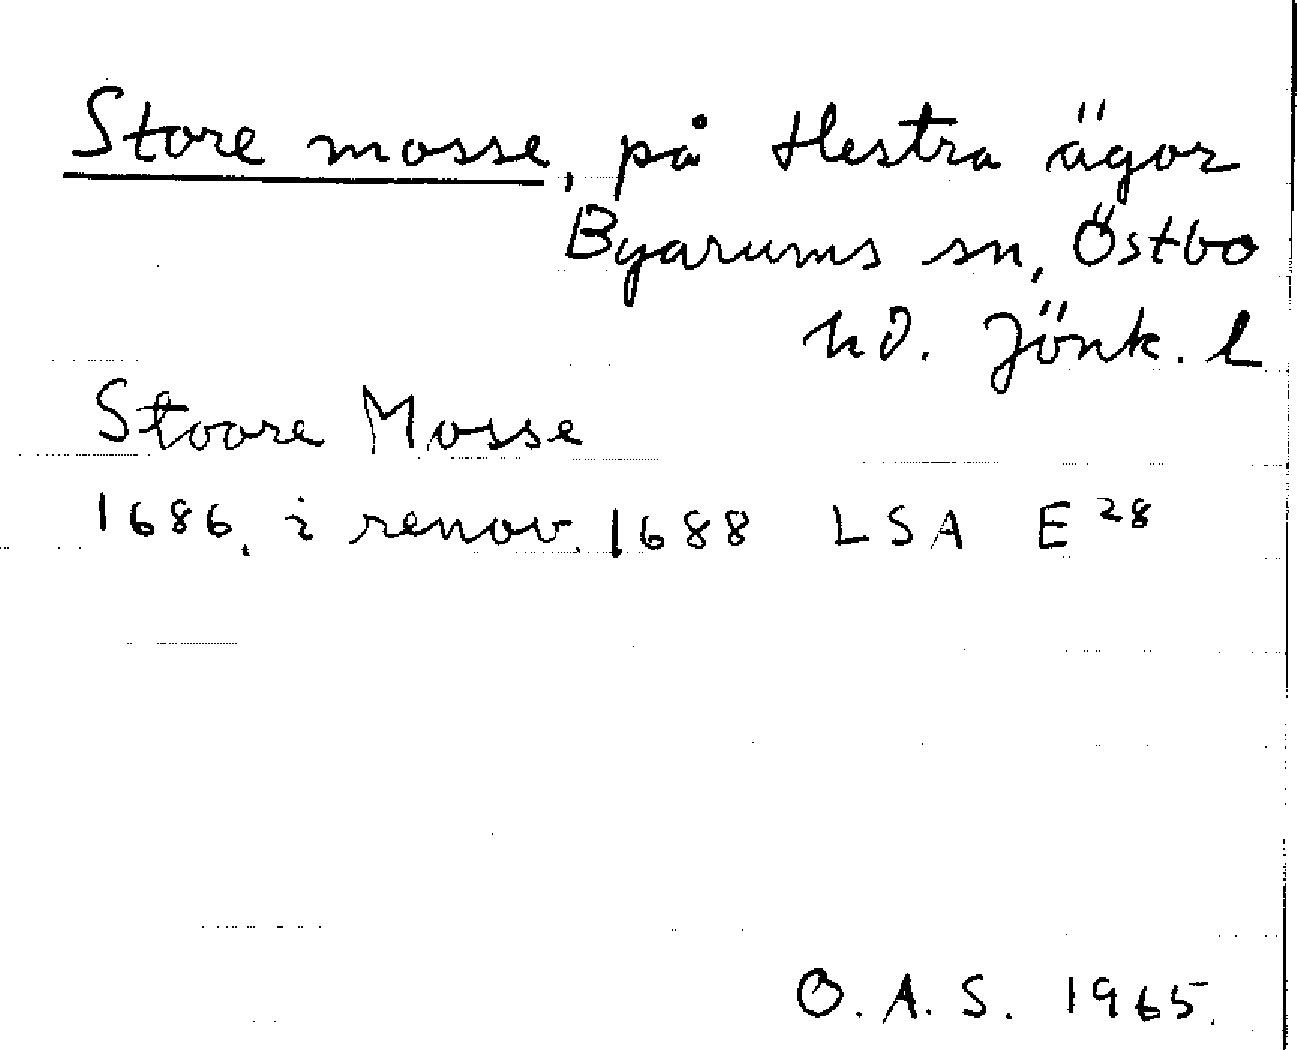 Store mosse, på Hestra ägor
Byarums sn, Östbo
hd. Jönk. l
Stoore Mosse
1686, i renov. 1688 LSA E 28
O. A. S. 1965.